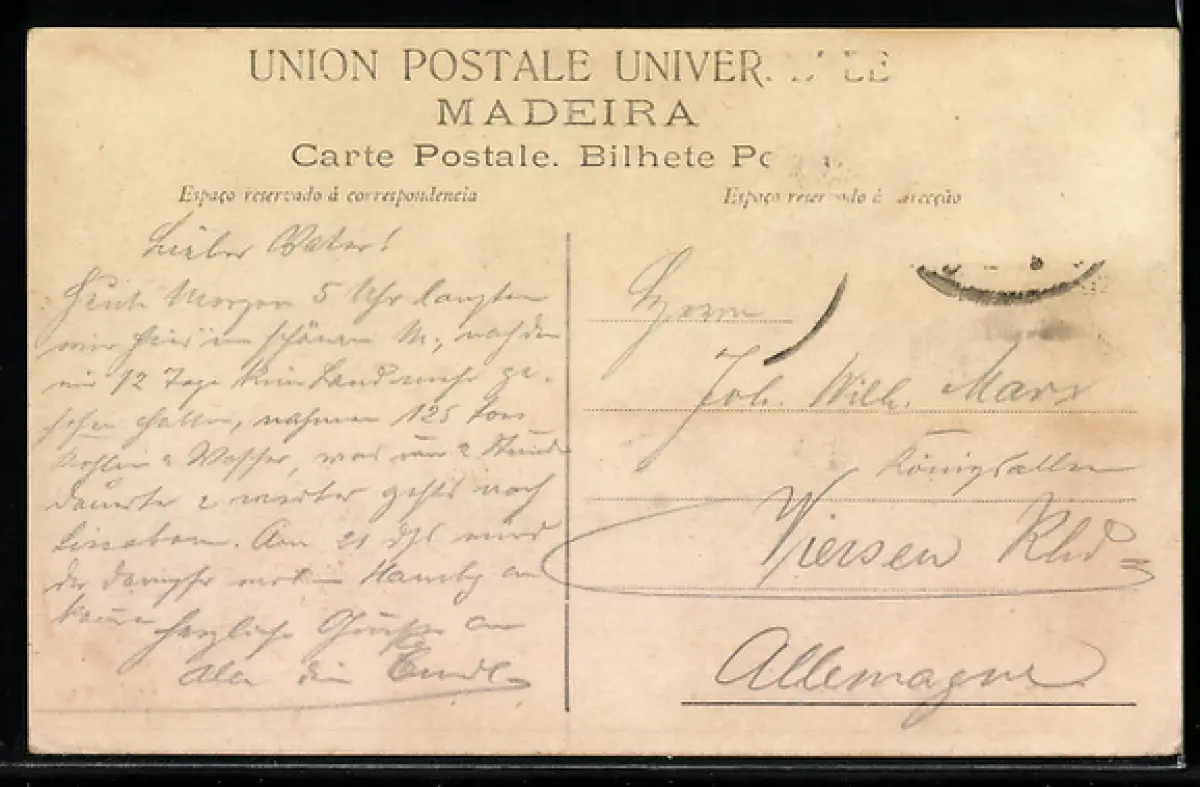 UNION POSTALE UNIVER. LE
MADEIRA
Carte Postale. Bilhete Po
Espaço reservado á correspondencia
Espaço reservado á direcção
Lieber Vater!
Heute Morgen 5 Uhr langten
wir hier im schönen M., nachdem
wir 12 Tage kein Land mehr ge-
sehen hatten, nahmen 125 Tons
Kohlen & Wasser, was nur 2 Stunden
dauerte & weiter gehts nach
Lissabon. Am 21 dfs wird
der Dampfer in Hambg an
kommen herzliche Grüsse an
alle dein
Herrn
Joh. Wilh. Marx
Königsallee
Viersen Rhld
Allemagne